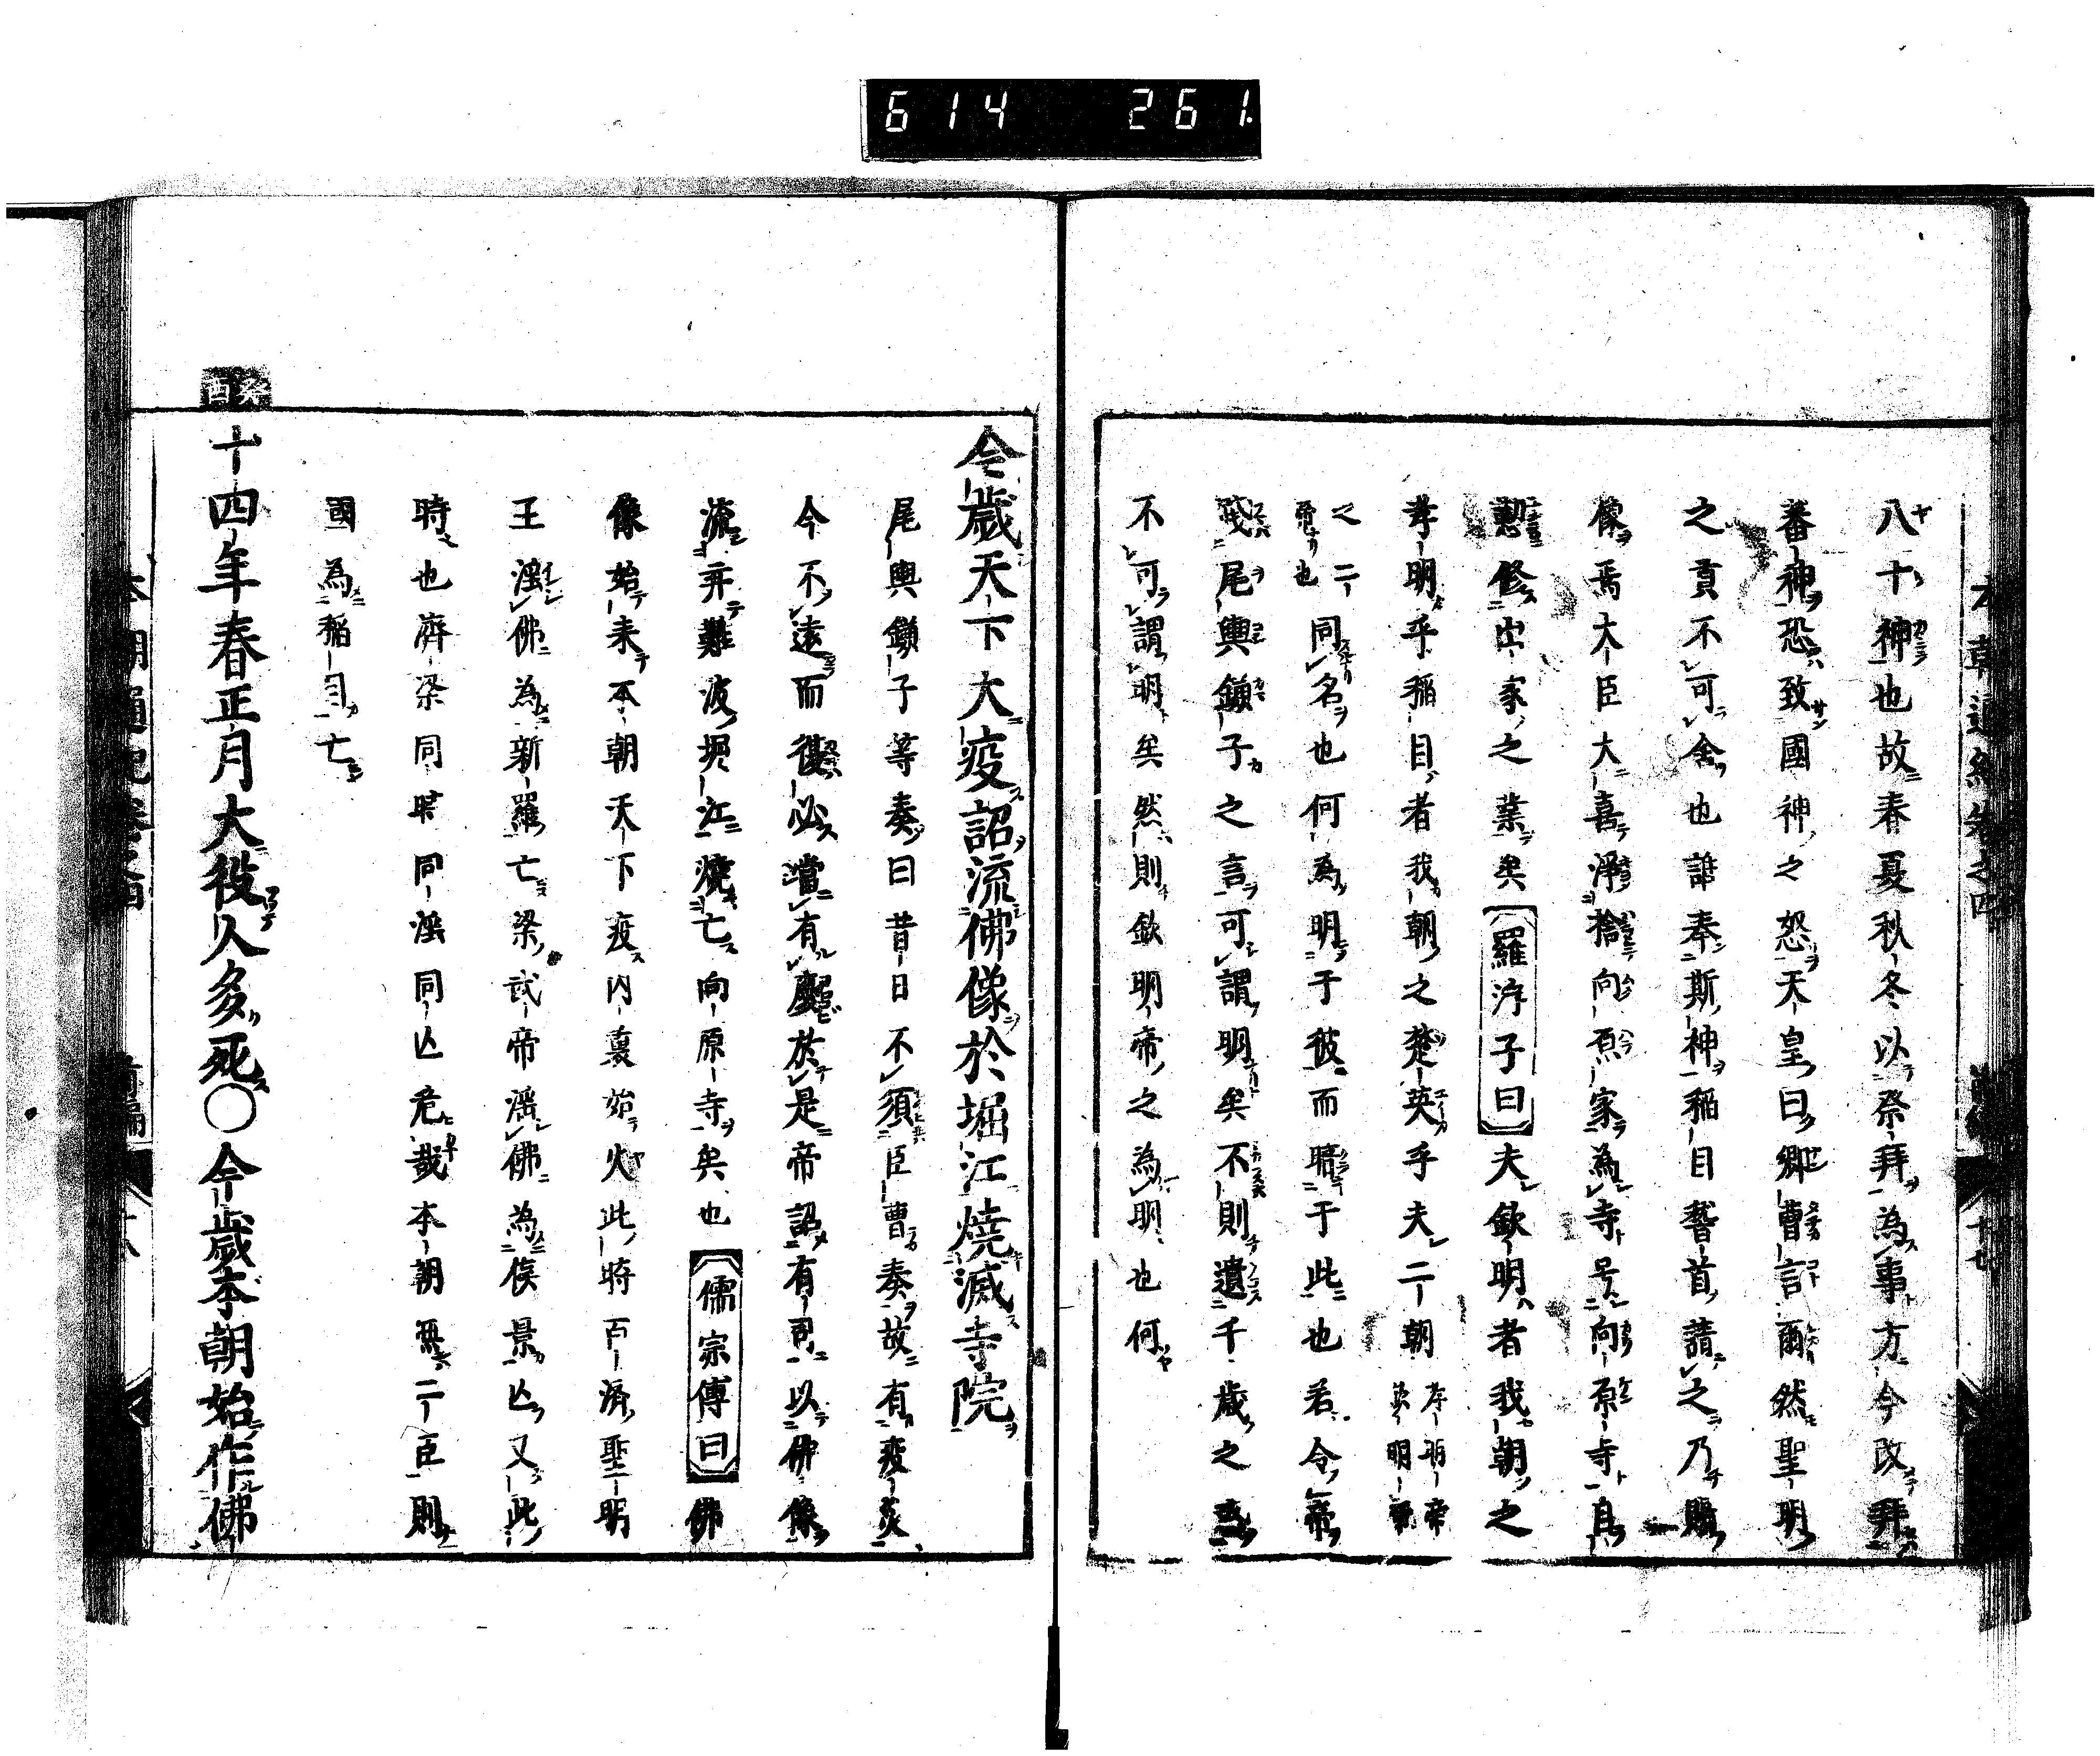 614 261.
本朝通紀卷之四 前編 十七
八十神也故春夏秋冬以祭拜為事方今改拜
蕃神恐致國神之怒天皇曰卿曹言爾然聖明
之貢不可舍也誰奉斯神稲目稽首請之乃賜
像焉大臣大喜淨捨向原家為寺号向原寺自
懃修出家之業矣羅浮子曰夫欽明者我朝之
孝明乎稲目者我朝之楚英乎夫二朝孝明帝欽明帝
之二帝也同名也何為明于彼而暗于此也若令帝
尾輿鎌子之言可謂明矣不則遺千歳之
不可謂明矣然則欽明帝之為明也何
今歳天下大疫詔流佛像於堀江燒滅寺院
尾輿鎌子等奏曰昔日不須臣曹奏故有疫災
今不遠而復必當有慶於是帝詔有司以佛像
流弃難波堀江燒亡向原寺矣也儒宗傳曰佛
像始来本朝天下疫内裏始火此時百濟聖明
王滛佛為新羅亡梁武帝滛佛為侯景亾又此
時也濟梁同時同滛同亾危哉本朝無二臣則
國為稲目亡
癸酉
十四年春正月大役人多死〇今歳本朝始作佛
本朝通紀卷之四 前編 十八